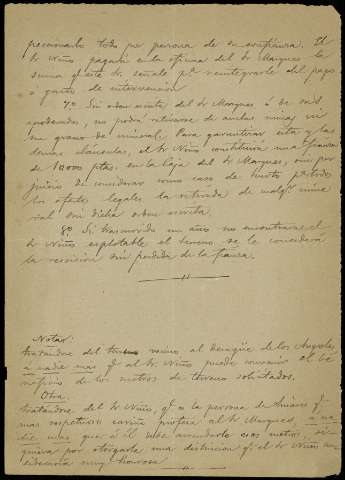 presenciarlo todo por persona de su confianza. El
Sr Niño pagará en la oficina del Sr Marques la
suma qe este Sr. señale pa reintegrarle del pago
ó gasto de intervencion
7º. Sin orden escrita del Sr Marques ó de sus
apoderados, no podrá retirarse de dichas minas ni
un grano de mineral. Para garantizar esta y las
demas cláusulas, el Sr Niño constituirá una fianza
de ptas. en la Caja del Sr Marques, sin per
juicio de considerar como caso de hurto pa todos
los efectos legales la retirada de cualqr mine
ral sin dicha orden escrita.
8º. Si trascurrido un año no encontrara el
Sr Niño esplotable el terreno se le concederá
la rescision sin perdida de la fianza.
Notas:
tratandose del terreno vecino al desagüe de los Angeles,
á nadie mas qe al Sr Niño puede convenir el be
neficio de los metros de terreno solicitados.
Otra.
tratándose del Sr Niño, qe es la persona de qe
mas respetuoso cariño profesa al Sr Marques, á na
die mas que á él debe arrendarle esos metros, si
quiera por otorgarle una distincion qe el Sr Niño
muy honrosa